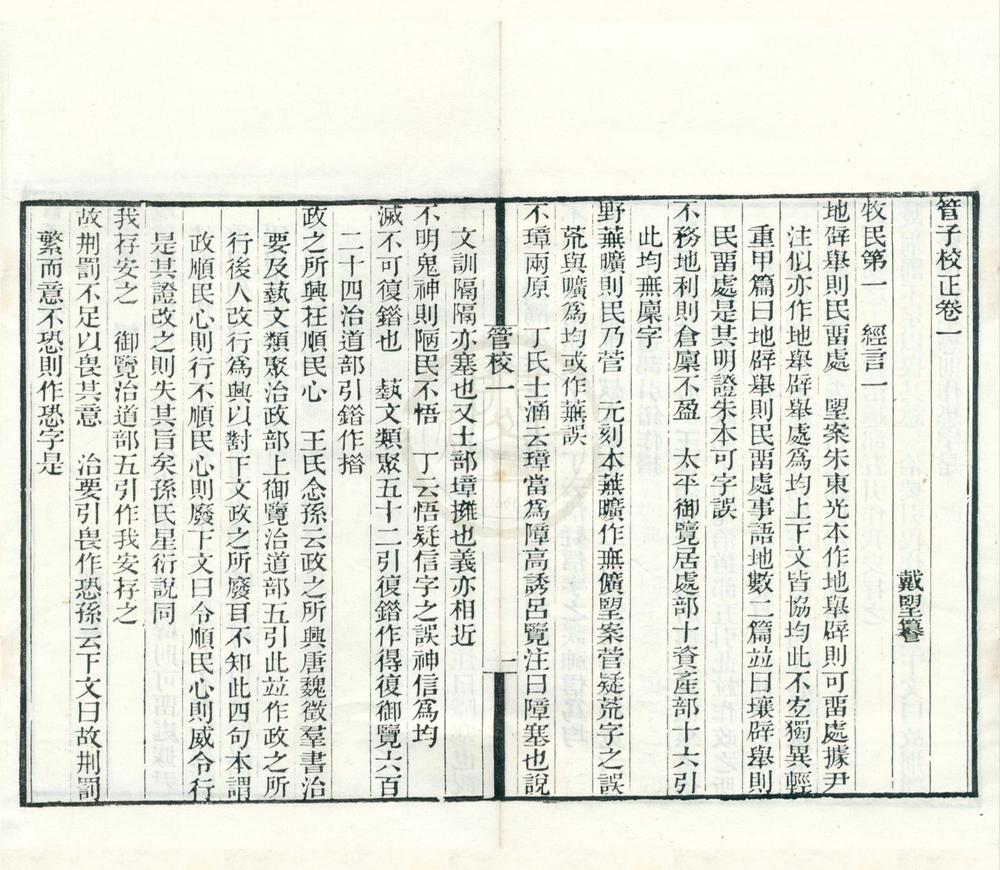 管子校正卷一
戴望篹
牧民第一　經言一
地辟舉則民畱處　望案朱東光本作地舉辟則可畱處據尹
注似亦作地舉辟舉處爲均上下文皆協均此不㝉獨異輕
重甲篇曰地辟舉則民畱處事語地數二篇竝曰壤辟舉則
民畱處是其明證朱本可字誤
不務地利則倉廩不盈　太平御覽居處部十資產部十六引
此均無廩字
野蕪曠則民乃菅　元刻本蕪曠作橆㿂望案菅疑荒字之誤
荒與曠爲均或作蕪誤
不璋兩原　丁氏士涵云璋當爲障高誘呂覽注曰障塞也說
管校一
一
文訓隔隔亦塞也又土部墇擁也義亦相近
不明鬼神則陋民不悟　丁云悟疑信字之誤神信爲均
滅不可復錯也　蓺文類聚五十二引復錯作得復御覽六百
二十四治道部引錯作措
政之所興在順民心　王氏念孫云政之所興唐魏徵羣書治
要及蓺文類聚治政部上御覽治道部五引此竝作政之所
行後人改行爲興以對下文政之所廢耳不知此四句本謂
政順民心則行不順民心則廢下文曰令順民心則威令行
是其證改之則失其旨矣孫氏星衍說同
我存安之　御覽治道部五引作我安存之
故荆罰不足以畏其意　治要引畏作恐孫云下文曰故荆罰
繁而意不恐則作恐字是